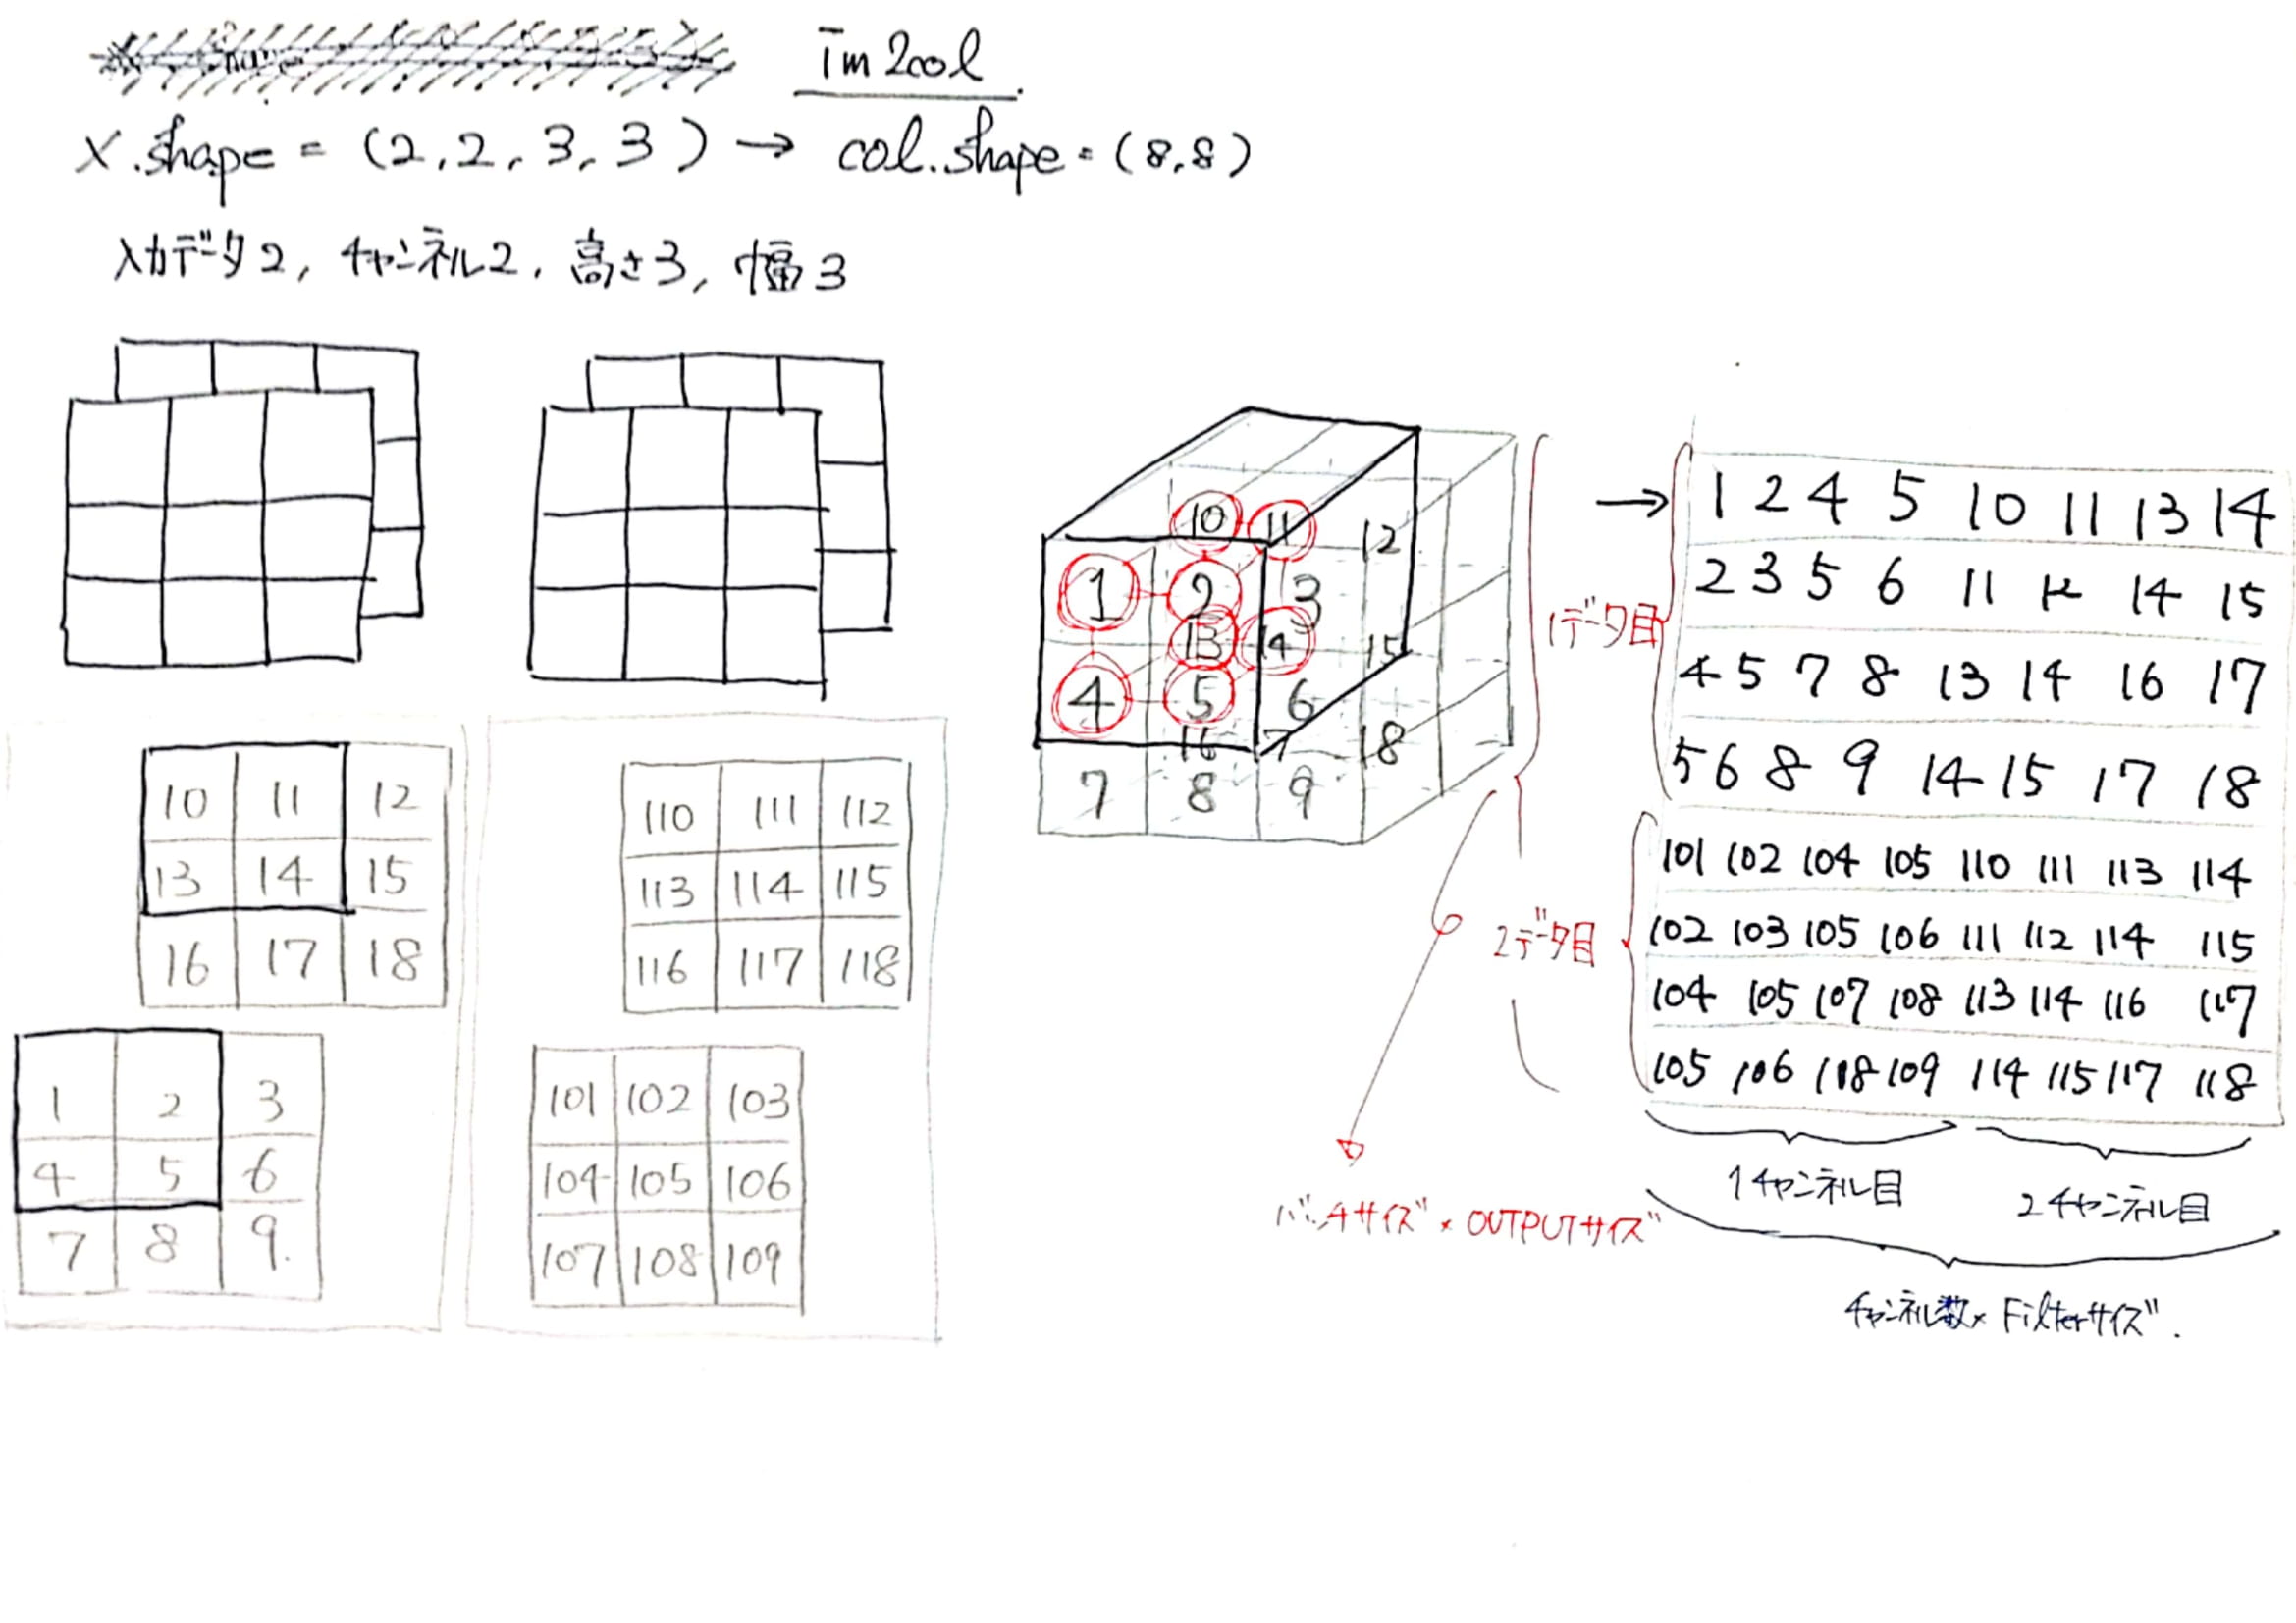 Im2col
X.shape = (2,2,3,3) → col.shape=(8,8)
入力データ2, チャンネル2, 高さ3, 幅3
10 11 12
13 14 15
16 17 18
1 2 3
4 5 6
7 8 9.
110 111 112
113 114 115
116 117 118
101 102 103
104 105 106
107 108 109
10 11 12
1 2 3
13 14 15
4 5 6
16 17 18
7 8 9
1データ目
→ 1 2 4 5 10 11 13 14
2 3 5 6 11 12 14 15
4 5 7 8 13 14 16 17
5 6 8 9 14 15 17 18
2データ目
101 102 104 105 110 111 113 114
102 103 105 106 111 112 114 115
104 105 107 108 113 114 116 117
105 106 108 109 114 115 117 118
1チャンネル目
2チャンネル目
バッチサイズ × OUTPUTサイズ
チャンネル数× Filterサイズ.